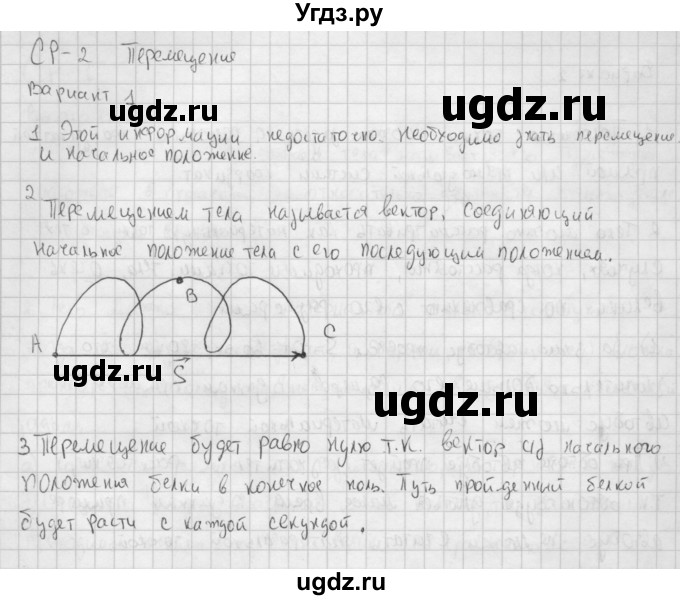 Угдз.ру
СР-2 Перемещение
Вариант 1
ugdz.ru
ugdz.ru
1 Этой информации недостаточно. Необходимо знать перемещение
и начальное положение.
2 Перемещением тела называется вектор, соединяющий
начальное положение тела с его последующим положением.
B
A
C
ugdz.ru
S
ugdz.ru
3 Перемещение будет равно нулю т.к. вектор из начального
положения белки в конечное ноль. Путь пройденный белкой
будет расти с каждой секундой.
ugdz.ru
ugdz.ru